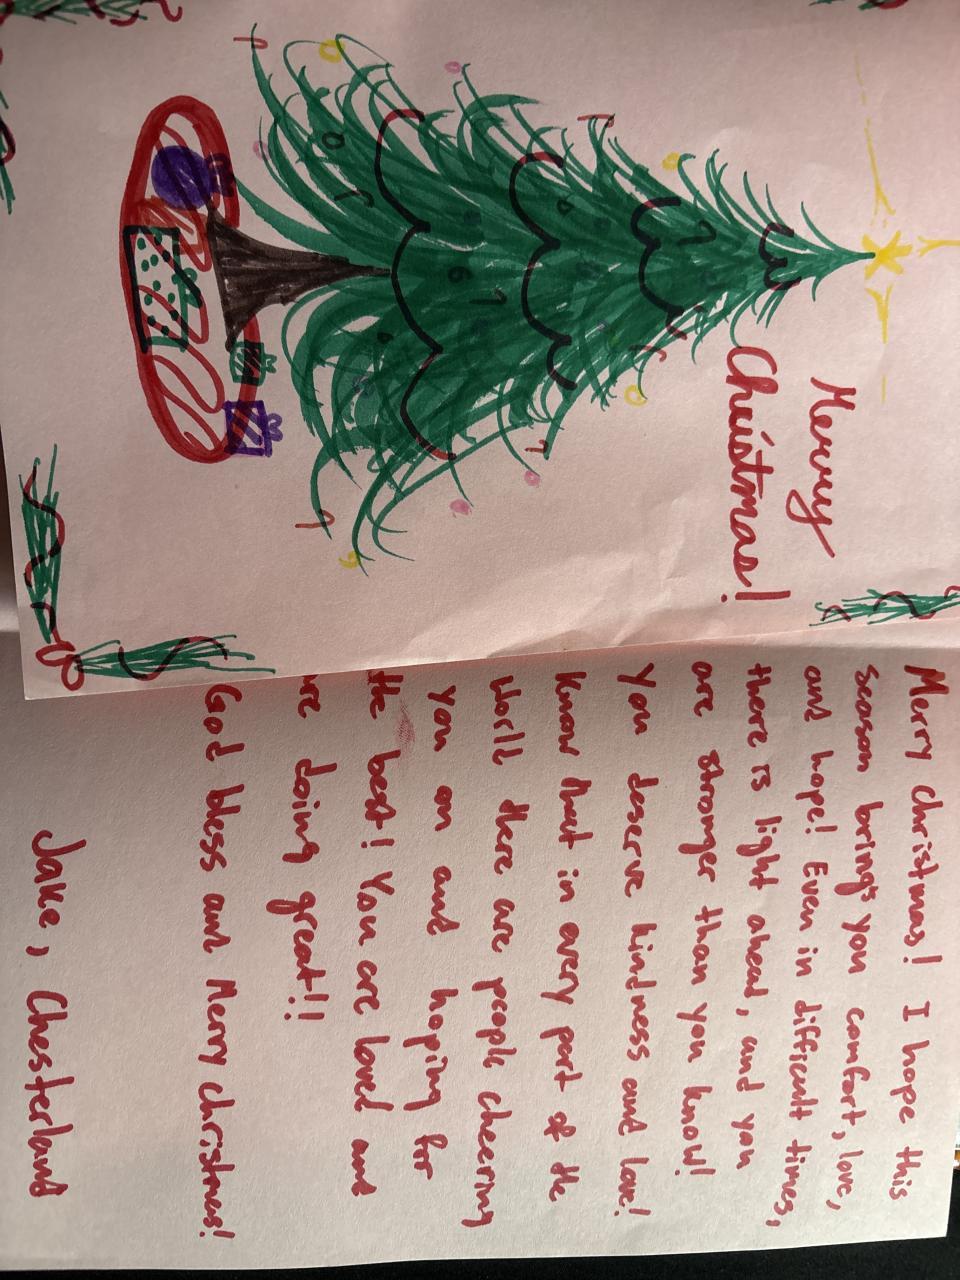 Merry
Christmas!
Merry Christmas! I hope this
season brings you comfort, love,
and hope! Even in difficult times,
there is light ahead, and you
are stronger than you know!
you deserve kindness and love!
Know that in every part of the
world there are people cheering
you on and hoping for
the best! You are loved and
are doing great!!
God bless and Merry Christmas!
Jake, Chesterland